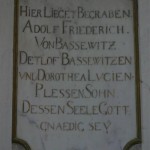 HIER LIEGET BEGRABEN.
ADOLF FRIEDERICH.
VON BASSEWITZ
DETLOF BASSEWITZEN
UND DOROTHEA LUCIEN.
PLESSEN SOHN.
DESSEN SEELE GOTT
GNAEDIG SEY